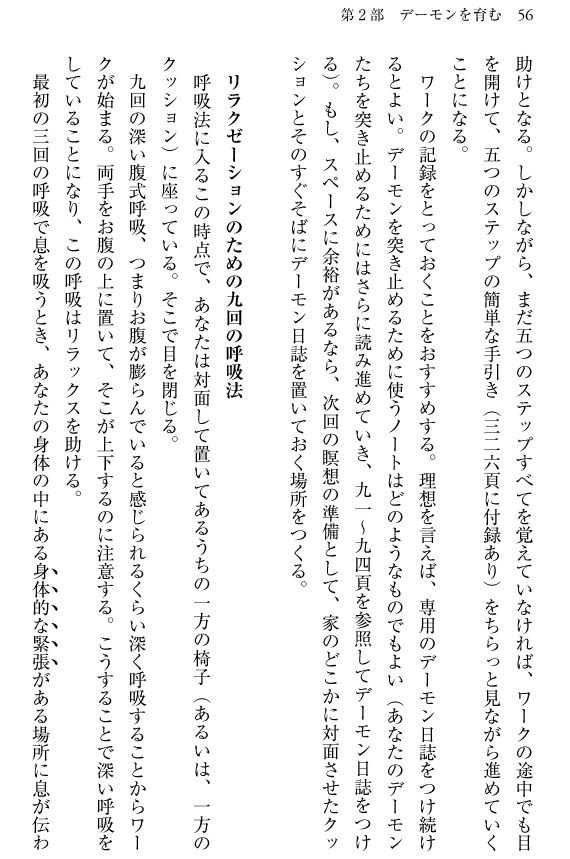 第２部　デーモンを育む　56
助けとなる。しかしながら、まだ五つのステップすべてを覚えていなければ、ワークの途中でも目
を開けて、五つのステップの簡単な手引き（三二六頁に付録あり）をちらっと見ながら進めていく
ことになる。
　ワークの記録をとっておくことをおすすめする。理想を言えば、専用のデーモン日誌をつけ続け
るとよい。デーモンを突き止めるために使うノートはどのようなものでもよい（あなたのデーモン
たちを突き止めるためにはさらに読み進めていき、九一～九四頁を参照してデーモン日誌をつけ
る）。もし、スペースに余裕があるなら、次回の瞑想の準備として、家のどこかに対面させたクッ
ションとそのすぐそばにデーモン日誌を置いておく場所をつくる。
リラクゼーションのための九回の呼吸法
　呼吸法に入るこの時点で、あなたは対面して置いてあるうちの一方の椅子（あるいは、一方の
クッション）に座っている。そこで目を閉じる。
　九回の深い腹式呼吸、つまりお腹が膨らんでいると感じられるくらい深く呼吸することからワー
クが始まる。両手をお腹の上に置いて、そこが上下するのに注意する。こうすることで深い呼吸を
していることになり、この呼吸はリラックスを助ける。
　最初の三回の呼吸で息を吸うとき、あなたの身体の中にある身体的な緊張がある場所に息が伝わ